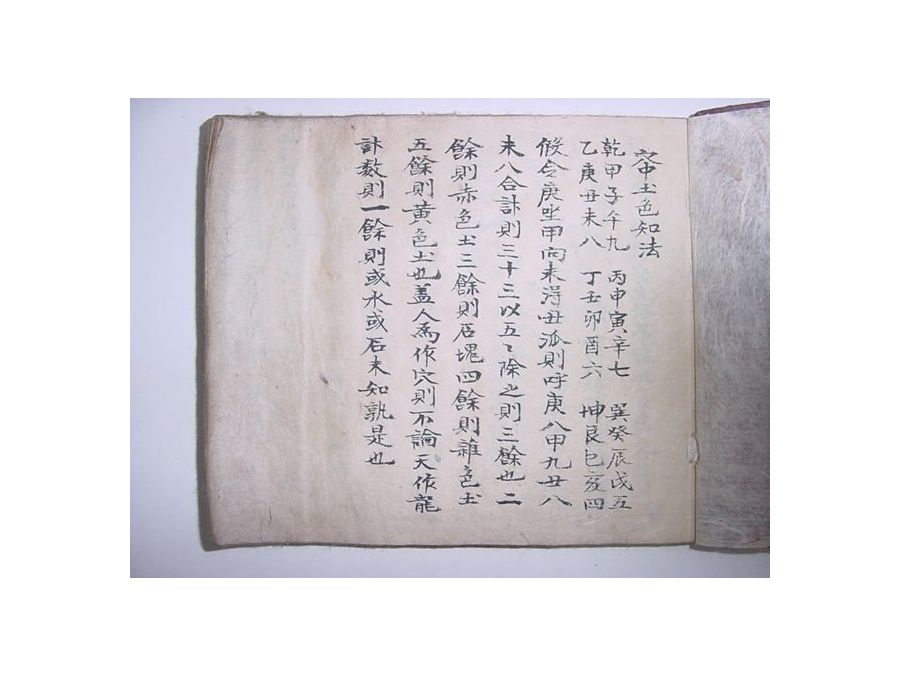 穴中土色知法
乾甲子午九 丙申寅辛七 巽癸辰戌五
乙庚丑未八 丁壬卯酉六 坤艮巳亥四
候令庚坐甲向未淂丑泒則呼庚八甲九丑八
未八合計則三十三以五〻除之則三餘也二
餘則赤色土三餘則石塊四餘則雜色土
五餘則黄色土也盖人為作穴則不論天作龍
計数則一餘則或水或石未知孰是也